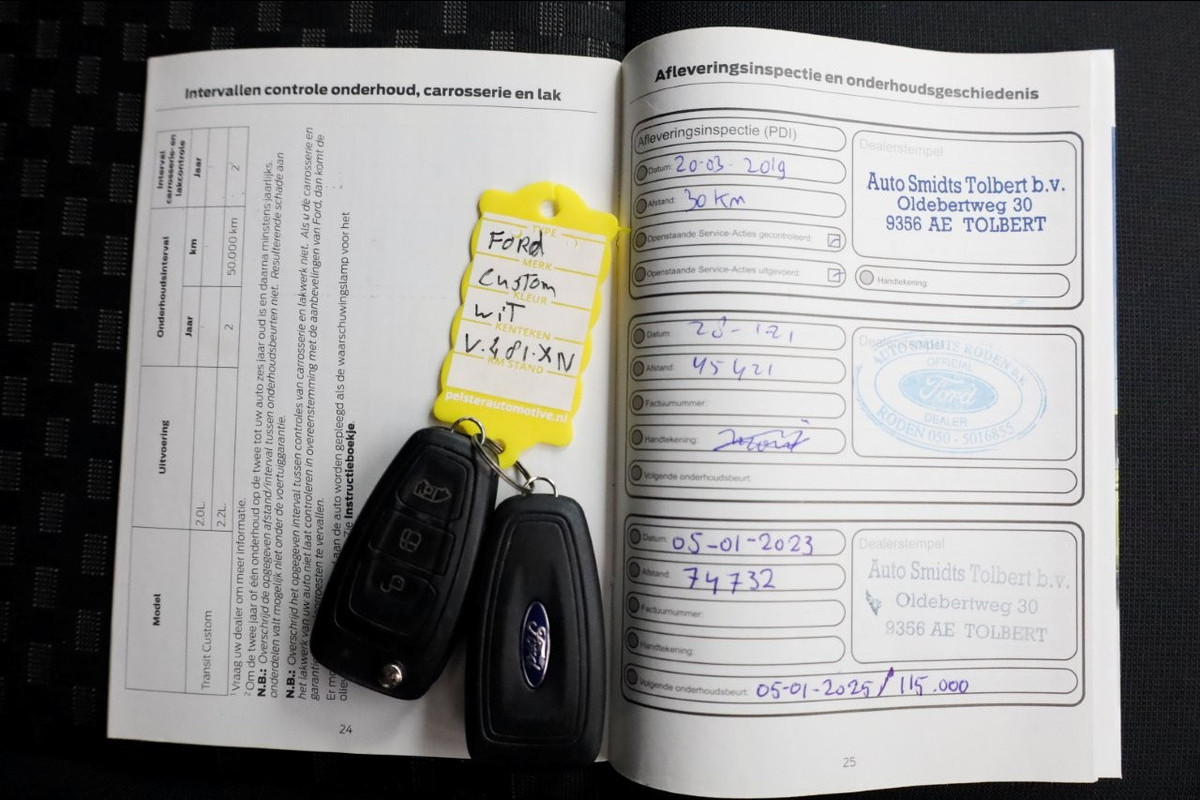 Intervallen controle onderhoud, carrosserie en lak
Model
Uitvoering
Onderhoudsinterval
Interval carrosserie-en lakcontrole
Jaar
km
Jaar
Transit Custom
2.0L
2.2L
2
50.000 km
2
¹ Vraag uw dealer om meer informatie.
² Om de twee jaar of één onderhoud op de twee tot uw auto zes jaar oud is en daarna minstens jaarlijks.
N.B.: Overschrijd de opgegeven afstand/interval tussen onderhoudsbeurten niet. Resulterende schade aan
onderdelen valt mogelijk niet onder de voertuiggarantie.
N.B.: Overschrijd het opgegeven interval tussen controles van carrosserie en lakwerk niet. Als u de carrosserie en
het lakwerk van uw auto niet laat controleren in overeenstemming met de aanbevelingen van Ford, dan komt de
te vervallen.
aan de auto worden gepleegd als de waarschuwingslamp voor het
Instructieboekje.
24
TYPE
FORD
MERK
Custom
KLEUR
WIT
KENTEKEN
V.481.XN
KM STAND
pelsterautomotive.nl
Ford
Afleveringsinspectie en onderhoudsgeschiedenis
Afleveringsinspectie (PDI)
Datum: 20-03-2019
Afstand: 30 Km
Openstaande Service-Acties gecontroleerd:
Openstaande Service-Acties uitgevoerd:
Dealerstempel
Auto Smidts Tolbert b.v.
Oldebertweg 30
9356 AE TOLBERT
Handtekening:
Datum: 28-121
Afstand: 45421
Factuurnummer:
Handtekening:
Volgende onderhoudsbeurt:
Dealerstempel
AUTO SMIDTS RODEN B.V.
OFFICIAL
Ford
DEALER
RODEN 050 - 5016855
Datum: 05-01-2023
Afstand: 74732
Factuurnummer:
Handtekening:
Volgende onderhoudsbeurt: 05-01-2025 / 115.000
Dealerstempel
Auto Smidts Tolbert b.v.
Oldebertweg 30
9356 AE TOLBERT
25